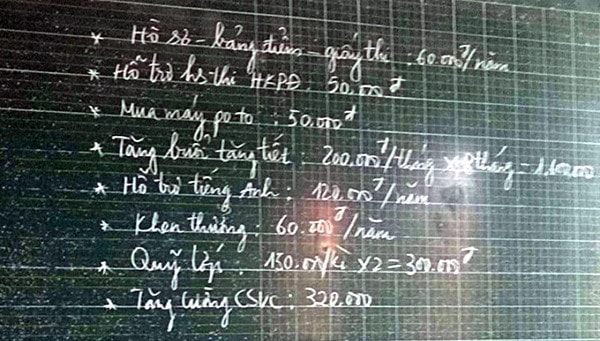 * Hồ sơ - bảng điểm - giấy thi : 60.000đ/năm
* Hỗ trợ hs thi HKPĐ : 50.000đ
* Mua máy po to : 50.000đ
* Tăng buổi tăng tiết : 200.000đ/tháng
* Hỗ trợ tiếng Anh : 120.000đ/năm
* Khen thưởng : 60.000đ/năm
* Quỹ lớp : 150.000/kì x2 = 300.000đ
* Tăng cường CSVC : 320.000